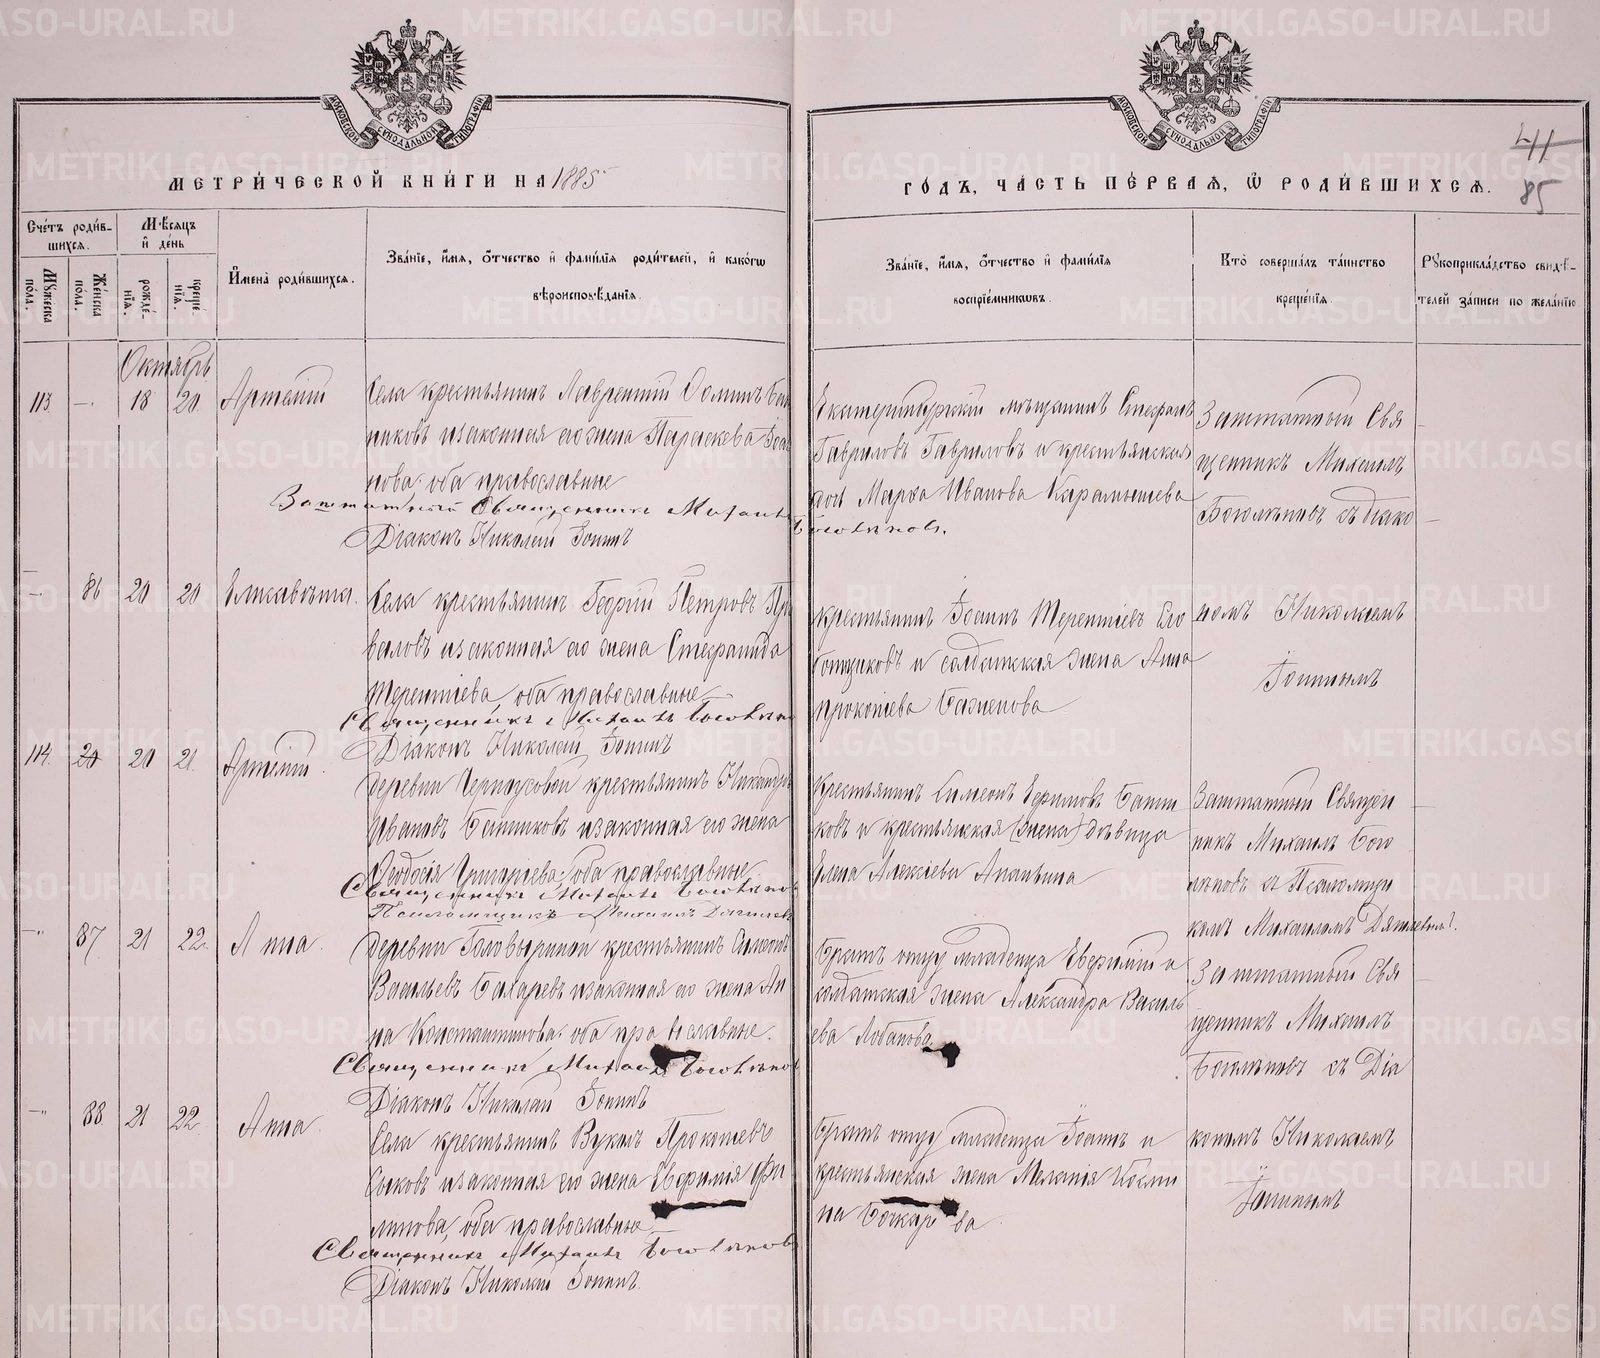 МЕТРИЧЕСКОЙ КНИГИ НА 1885
ГОДЪ, ЧАСТЬ ПЕРВАЯ, Ѡ РОДИВШИХСЯ.
41
85
Счетъ родив-
шихся.
Мужеска
пола.
Женска
пола.
Мѣсяцъ
и день
рожде-
нія.
креще-
нія.
Имена родившихся.
Званіе, имя, отчество и фамилія родителей, и какогѡ
вѣроисповѣданія.
Званіе, имя, отчество и фамилія
воспріемниковъ.
Кто совершалъ таинство
крещенія.
Рукоприкладство свидѣ-
телей записи по желанію
Октябрь
113. — 18 20. Артемій
Села крестьянинъ Лаврентій Фоминъ
никовъ и законная его жена Параскева
нова, оба православные
Заштатный Священникъ Михаилъ Боголѣповъ.
Діаконъ Николай Іонинъ
Екатеринбургскій мѣщанинъ Стефанъ
Гавриловъ Гавриловъ и крестьянская
Марѳа Иванова Карамышева
Заштатный Свя
щенникъ Михаилъ
Боголѣповъ съ діако
— 86 20 20 Елисавета.
Села крестьянинъ Георгій Петровъ
валовъ и законная его жена Стефанида
Терентіева, оба православные
Священникъ Михаилъ Боголѣповъ
Діаконъ Николай Іонинъ
крестьянинъ Іоаннъ Терентіевъ
и солдатская жена Анна
Прокопіева Баженова
номъ Николаемъ
Іонинымъ
114. 20 20 21. Артемій.
деревни Черноусовой крестьянинъ Никандръ
Ивановъ Банниковъ и законная его жена
Ѳеодосія Григоріева, оба православные
Священникъ Михаилъ Боголѣповъ
Псаломщикъ Михаилъ
Крестьянинъ Симеонъ Ефимовъ Банни
ковъ и крестьянская (жена) дѣвица
Елена Алексіева Ананьина
Заштатный Священ
никъ Михаилъ Бого
лѣповъ съ Псаломщи
комъ Михаиломъ
—" 87. 21 22. Анна.
деревни Головыриной крестьянинъ Симеонъ
Васильевъ Бахаревъ и законная его жена Ан
на Константинова, оба православные.
Священникъ Михаилъ Боголѣповъ
Діаконъ Николай Іонинъ
Братъ отцу младенца Евфимій и
солдатская жена Александра Василь
ева Лобанова
Заштатный Свя
щенникъ Михаилъ
Боголѣповъ съ Діа
—" 88. 21 22. Анна.
Села крестьянинъ Вуколъ Прокопіевъ
Сысковъ и законная его жена Евфимія Фи
липова, оба православные
Священникъ Михаилъ Боголѣповъ
Діаконъ Николай Іонинъ.
Братъ отцу младенца Іоаннъ и
крестьянская жена Меланія Косми
на Бочкарева
кономъ Николаемъ
Іонинымъ
METRIKI.GASO-URAL.RU